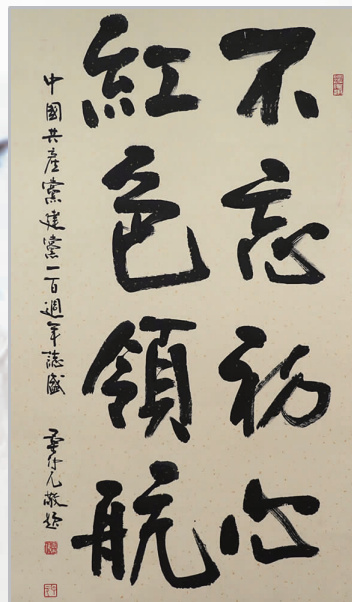 不忘初心
紅色領航
中國共產黨建黨一百週年誌盛
敬題